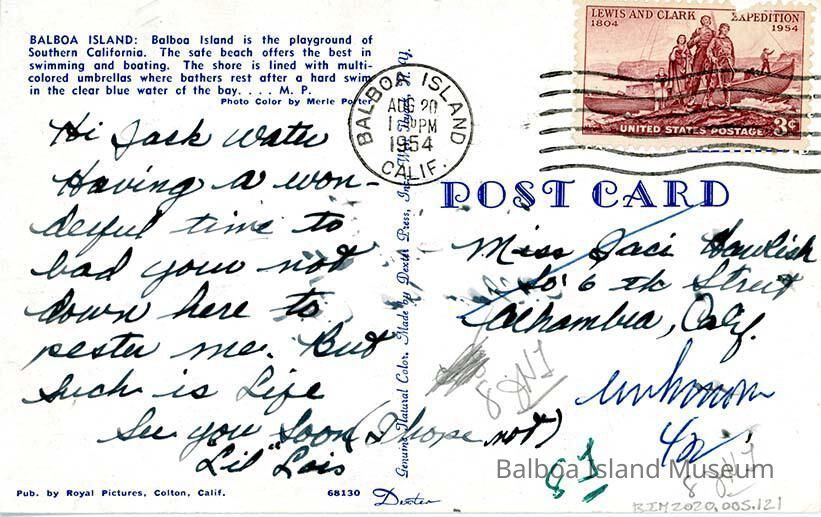 BALBOA ISLAND: Balboa Island is the playground of
Southern California. The safe beach offers the best in
swimming and boating. The shore is lined with multi-
colored umbrellas where bathers rest after a hard swim
in the clear blue water of the bay. . . . M. P.
Photo Color by Merle Porter
Hi Jack Water
Having a won-
derful time to
bad your not
down here to
pester me. But
such is Life
See you soon (I hope not)
"Lil" Lois
Pub. by Royal Pictures, Colton, Calif.
68130
Dexter
Genuine Natural Color. Made by Dexter Press, Inc. West Nyack, N. Y.
BALBOA ISLAND
AUG 20
PM
1954
CALIF.
LEWIS AND CLARK EXPEDITION
1804 1954
UNITED STATES POSTAGE 3¢
POST CARD
Miss Jaci
So' 6 th Street
Alhambra, Calif.
unknown
Balboa Island Museum
BIM2020.005.121